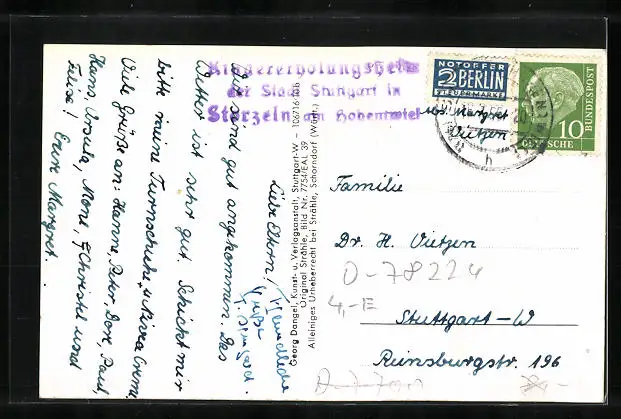 Kindererholungsheim
der Stadt Stuttgart in
Storzeln am Hohentwiel
Liebe Eltern!
Wir sind gut angekommen. Das
Wetter ist sehr gut. Schickt mir
bitte meine Turnschuhe u. Nivea Creme.
Viele Grüße an: Hanne, Peter, Dore, Paul,
Hans, Ursula, Mone, Christel und
Eure Margret.
Freundliche
Grüße
Georg Dangel, Kunst- u. Verlagsanstalt, Stuttgart-W - 106716 Tbb
Original Strähle, Bild Nr. 7754/EAL 39
Alleiniges Urheberrecht bei Strähle, Schorndorf (Württ.)
NOTOPFER
2 BERLIN
STEUERMARKE
DEUTSCHE
BUNDESPOST
10
Abs. Margret
Vietzen
Familie
Dr. H. Vietzen
D-78224
4,-E
Stuttgart-W
Reinsburgstr. 196